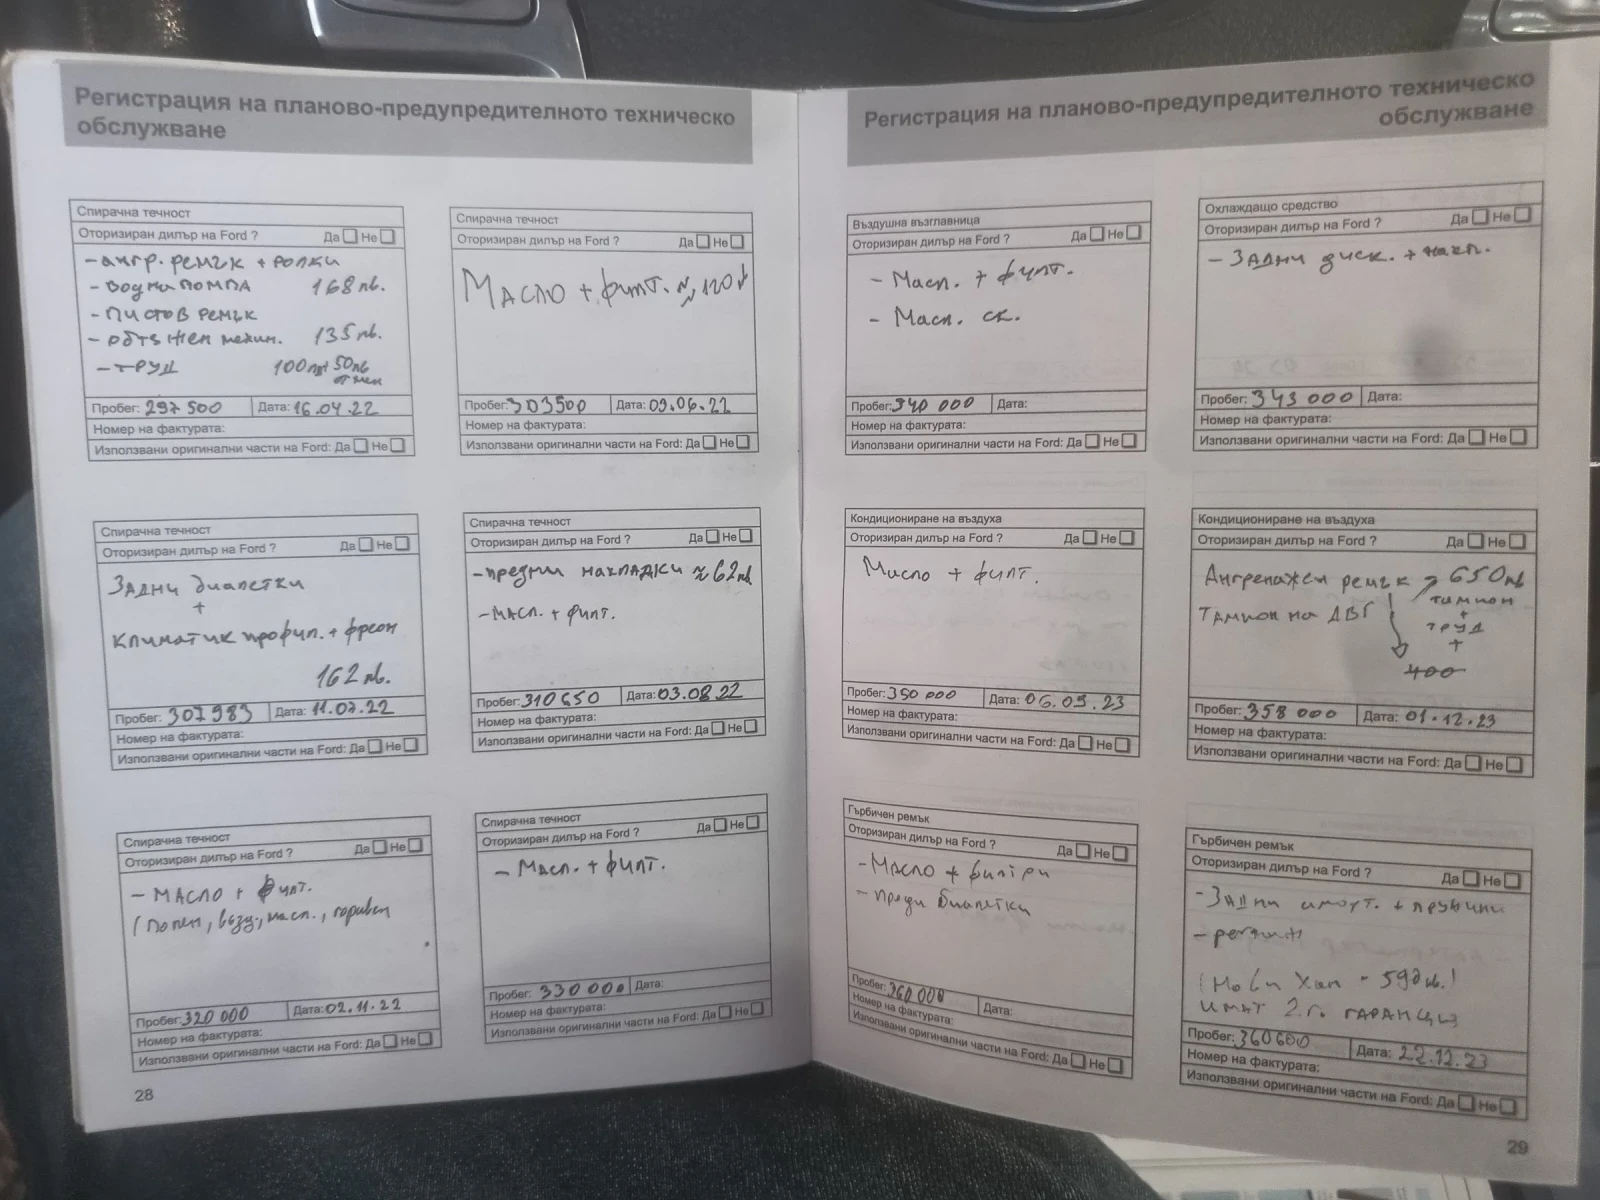 Регистрация на планово-предупредителното техническо
обслужване
Спирачна течност
Оторизиран дилър на Ford ? Да Не
- ангр. ремък + ролки
- водна помпа 168 лв.
- пистов ремък
- обтяжен механ. 135 лв.
- труд 100лв+50лв
Пробег: 297 500 Дата: 16.04.22
Номер на фактурата:
Използвани оригинални части на Ford: Да Не
Спирачна течност
Оторизиран дилър на Ford ? Да Не
Масло + филт. ≈ 120
Пробег: 303500 Дата: 09.06.22
Номер на фактурата:
Използвани оригинални части на Ford: Да Не
Спирачна течност
Оторизиран дилър на Ford ? Да Не
Задни биалетки
+
Климатик профил. + фреон
162 лв.
Пробег: 307983 Дата: 11.07.22
Номер на фактурата:
Използвани оригинални части на Ford: Да Не
Спирачна течност
Оторизиран дилър на Ford ? Да Не
- предни накладки ≈ 62лв
- масл. + филт.
Пробег: 310650 Дата: 03.08.22
Номер на фактурата:
Използвани оригинални части на Ford: Да Не
Спирачна течност
Оторизиран дилър на Ford ? Да Не
- масло + филт.
(полен, възд., масл., горивен
Пробег: 320 000 Дата: 02.11.22
Номер на фактурата:
Използвани оригинални части на Ford: Да Не
Спирачна течност
Оторизиран дилър на Ford ? Да Не
- Масл. + филт.
Пробег: 330 000 Дата:
Номер на фактурата:
Използвани оригинални части на Ford: Да Не
28
Регистрация на планово-предупредителното техническо
обслужване
Въздушна възглавница
Оторизиран дилър на Ford ? Да Не
- Масл. + филт.
- Масл. ск.
Пробег: 340 000 Дата:
Номер на фактурата:
Използвани оригинални части на Ford: Да Не
Охлаждащо средство
Оторизиран дилър на Ford ? Да Не
- Задни диск. + накл.
Пробег: 343 000 Дата:
Номер на фактурата:
Използвани оригинални части на Ford: Да Не
Кондициониране на въздуха
Оторизиран дилър на Ford ? Да Не
Масло + филт.
Пробег: 350 000 Дата: 06.09.23
Номер на фактурата:
Използвани оригинални части на Ford: Да Не
Кондициониране на въздуха
Оторизиран дилър на Ford ? Да Не
Ангренажен ремък 650лв
Тампон на ДВГ тампон
+
труд
+
400
Пробег: 358 000 Дата: 01.12.23
Номер на фактурата:
Използвани оригинални части на Ford: Да Не
Гърбичен ремък
Оторизиран дилър на Ford ? Да Не
- Масло + филтри
- предн биалетки
Пробег: 360 000 Дата:
Номер на фактурата:
Използвани оригинални части на Ford: Да Не
Гърбичен ремък
Оторизиран дилър на Ford ? Да Не
- Задни аморт. + пружини
(Нови Хан - 592лв.!
имат 2.г. гаранция
Пробег: 360600 Дата: 22.12.23
Номер на фактурата:
Използвани оригинални части на Ford: Да Не
29